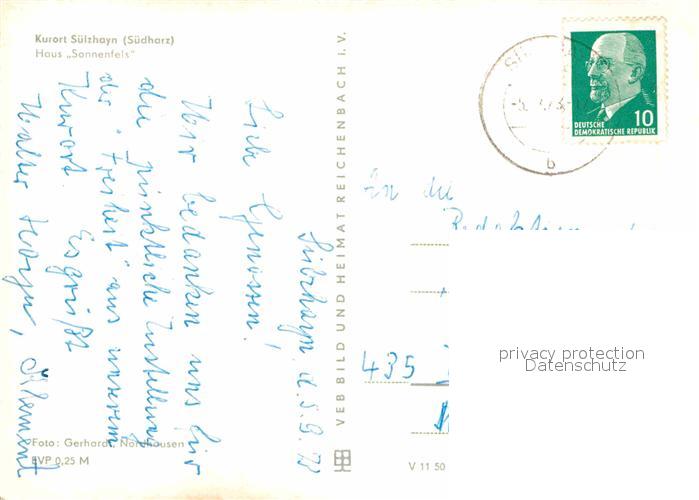 Kurort Sülzhayn (Südharz)
Haus „Sonnenfels"
Sülzhayn, d. 5.9.72
Liebe Genossen!
Wir bedanken uns für
die pünktliche Zustellung
der "Freiheit" aus unserem
Kurort. Es grüßt
Walter
Foto: Gerhardt, Nordhausen
EVP 0,25 M
VEB BILD UND HEIMAT REICHENBACH i. V.
V 11 50
DEUTSCHE
DEMOKRATISCHE REPUBLIK
10
b
An die
Redaktion
435
privacy protection
Datenschutz